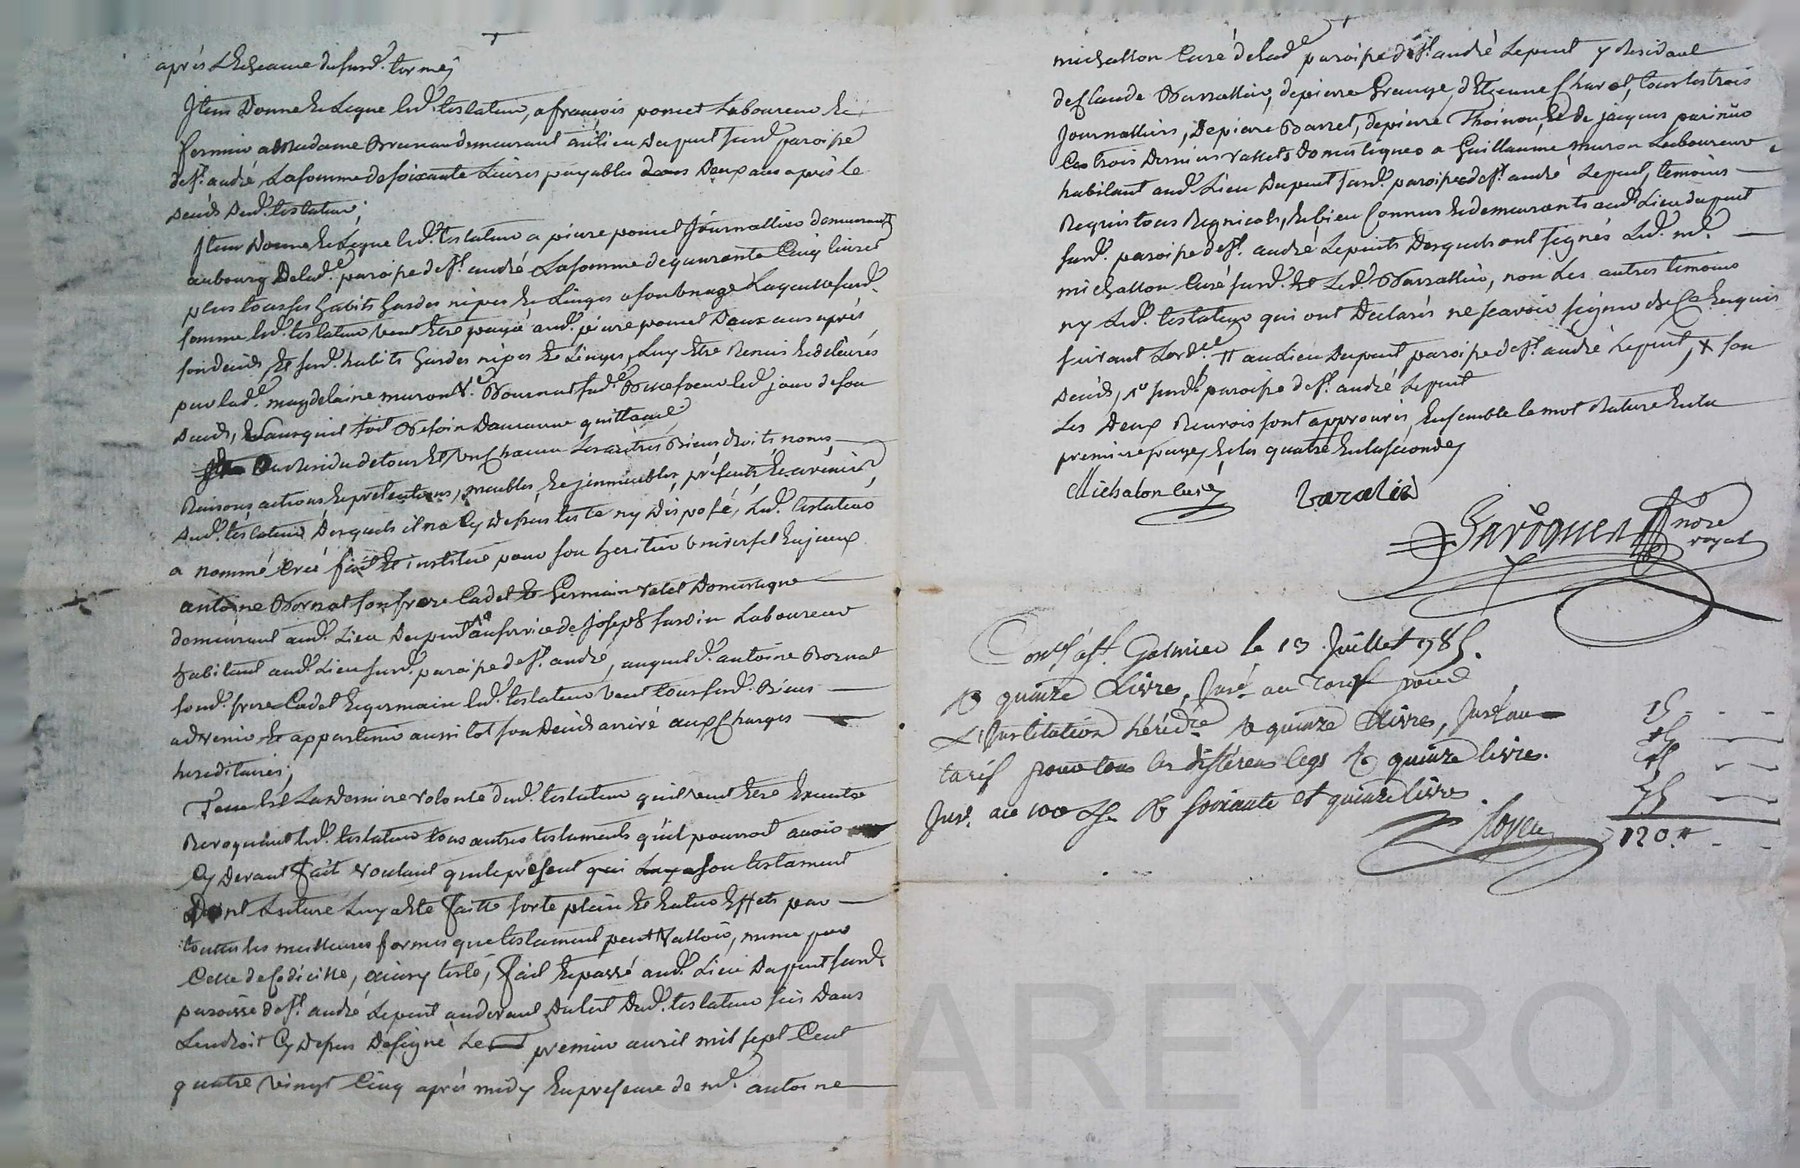 après l'Echeance dususd. terme;
Item Donne Et Legue led. testateur, a françois poncet Laboureur Et
fermier a Madame demeurant au lieu Dupuit susd. paroisse
de st. andré La somme de soixante Livres payables Deux ans après le
Decès Dud. testateur;
Item Donne Et Legue led. testateur a piere poncet Journallier demeurant
au bourg De lad. paroisse de st. andré La somme de quarante Cinq livres
plus tous ses habits hardes nipes Et Linges a son usage Laquelle susd.
somme led. testateur veut Etre payée aud. piere poncet Deux ans après
son decès, Et susd. habits hardes nipes Et Linges, Luy Etre Remis Et delivrés
par lad. magdelaine muron Ve. Bournat sad. Belle soeur led. jour de son
Decès, Et sans quil soit Besoin Daucune quittance
Au Residu de tous Et un Chacun Les autres Biens droits noms
Raisons actions Et prétentions, meubles, Et jmmeubles, présents, Et avenir
Dud. testateur Desquels il n'a Cy Dessus testé ny Disposé, Led. testateur
a nommé Créé fait Et institué pour son heritier universel
antoine Bornat son frere Cadet Et Germain valet Domestique
demeurant aud. Lieu Dupuit au service de Joseph Laboureur
habitant aud. Lieu susd. paroisse de st. andré, auquel d. antoine Bornat
sond. frere Cadet Et germain led. testateur veut tous susd. Biens
advenir Et appartenir aussitot son Decès arrivé aux Charges
hereditaires;
Telle Est La Derniere volonté dud. testateur qu'il veut Etre Executée
Revoquant led. testateur tous autres testaments qu'il pourroit avoir
Cy Devant fait voulant que le présent qui son testament
Dont Lecture Luy a Eté faitte sorte plein Et Entier Effet par
touttes les meilleures formes que testament peut valloir, meme par
Celle de Codicille, ainsy testé, fait Et passé aud. Lieu Dupuit susd.
paroisse de st. andré Lepuit au devant Dulit Dud. testateur sis Dans
Lendroit Cy Dessus Designé Le premier avril mil sept Cent
quatre vingt Cinq après midy En presence de mr. antoine
michallon Curé de lad. paroisse de st. andré Lepuit y Residant
de Claude Barrallier, de pierre Grange, d'Etienne Charet, tous les trois
Journalliers, De piere Barret, de pierre Thoinon, Et de jacques
Ces trois Derniers vallets Domestiques a Guillaume muron Laboureur
habitant aud. Lieu Dupuit susd. paroisse de st. andré Lepuit, temoins
Requis tous Regnicols, Et bien Connus Et demeurants aud. Lieu dupuit
susd. paroisse de st. andré Lepuit Desquels ont signés Led. mr.
michallon Curé susd. Et Led. Barrallier, non Les autres temoins
ny Led. testateur qui ont Declarés ne scavoir signer de Ce Enquis
suivant Lord.ce au Lieu Dupuit paroisse de st. andré Lepuit, X son
Decès, susd. paroisse de st. andré Lepuit
Les Deux Renvois sont approuvés, Ensemble le mot Rature En la
premiere page, Et les quatre En la seconde
Michalon Curé Baralié
nore royal
Conlé a St. Galmier le 13 Juillet 1785.
R quinze Livres, Jusé au Tarif pour
L'Institution héréd.re R quinze Livres, Jusé au 15
tarif pour tous les differens legs R quinze livres. 15
Jusé. au 100 R soixante et quinze livres 75
120 #
CHAREYRON